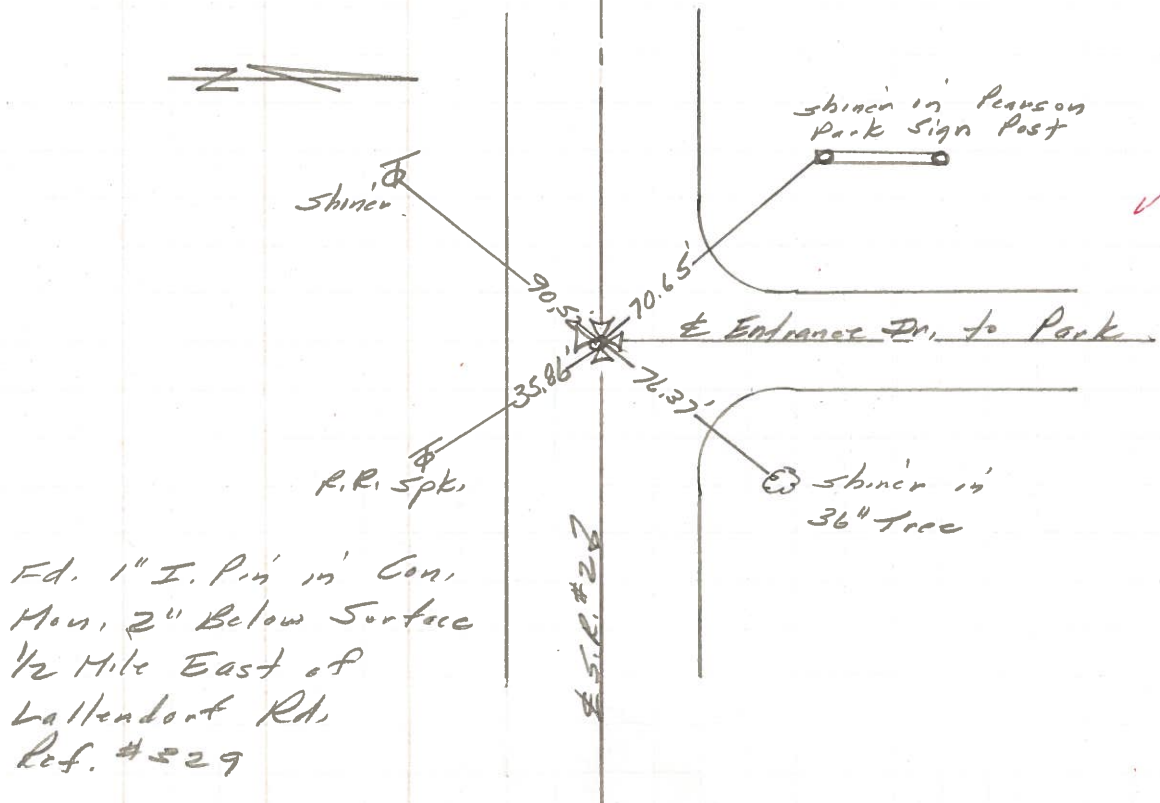 N
shiner in Pearson
Park Sign Post
shiner
90.5
70.65'
℄ Entrance Dr. to Park
35.86'
76.37'
R.R. Spk.
shiner in
36" Tree
℄ S.R. #2
Fd. 1" I. Pin in Con.
Mon. 2" Below Surface
1/2 Mile East of
Lallendorf Rd.
Ref. #329